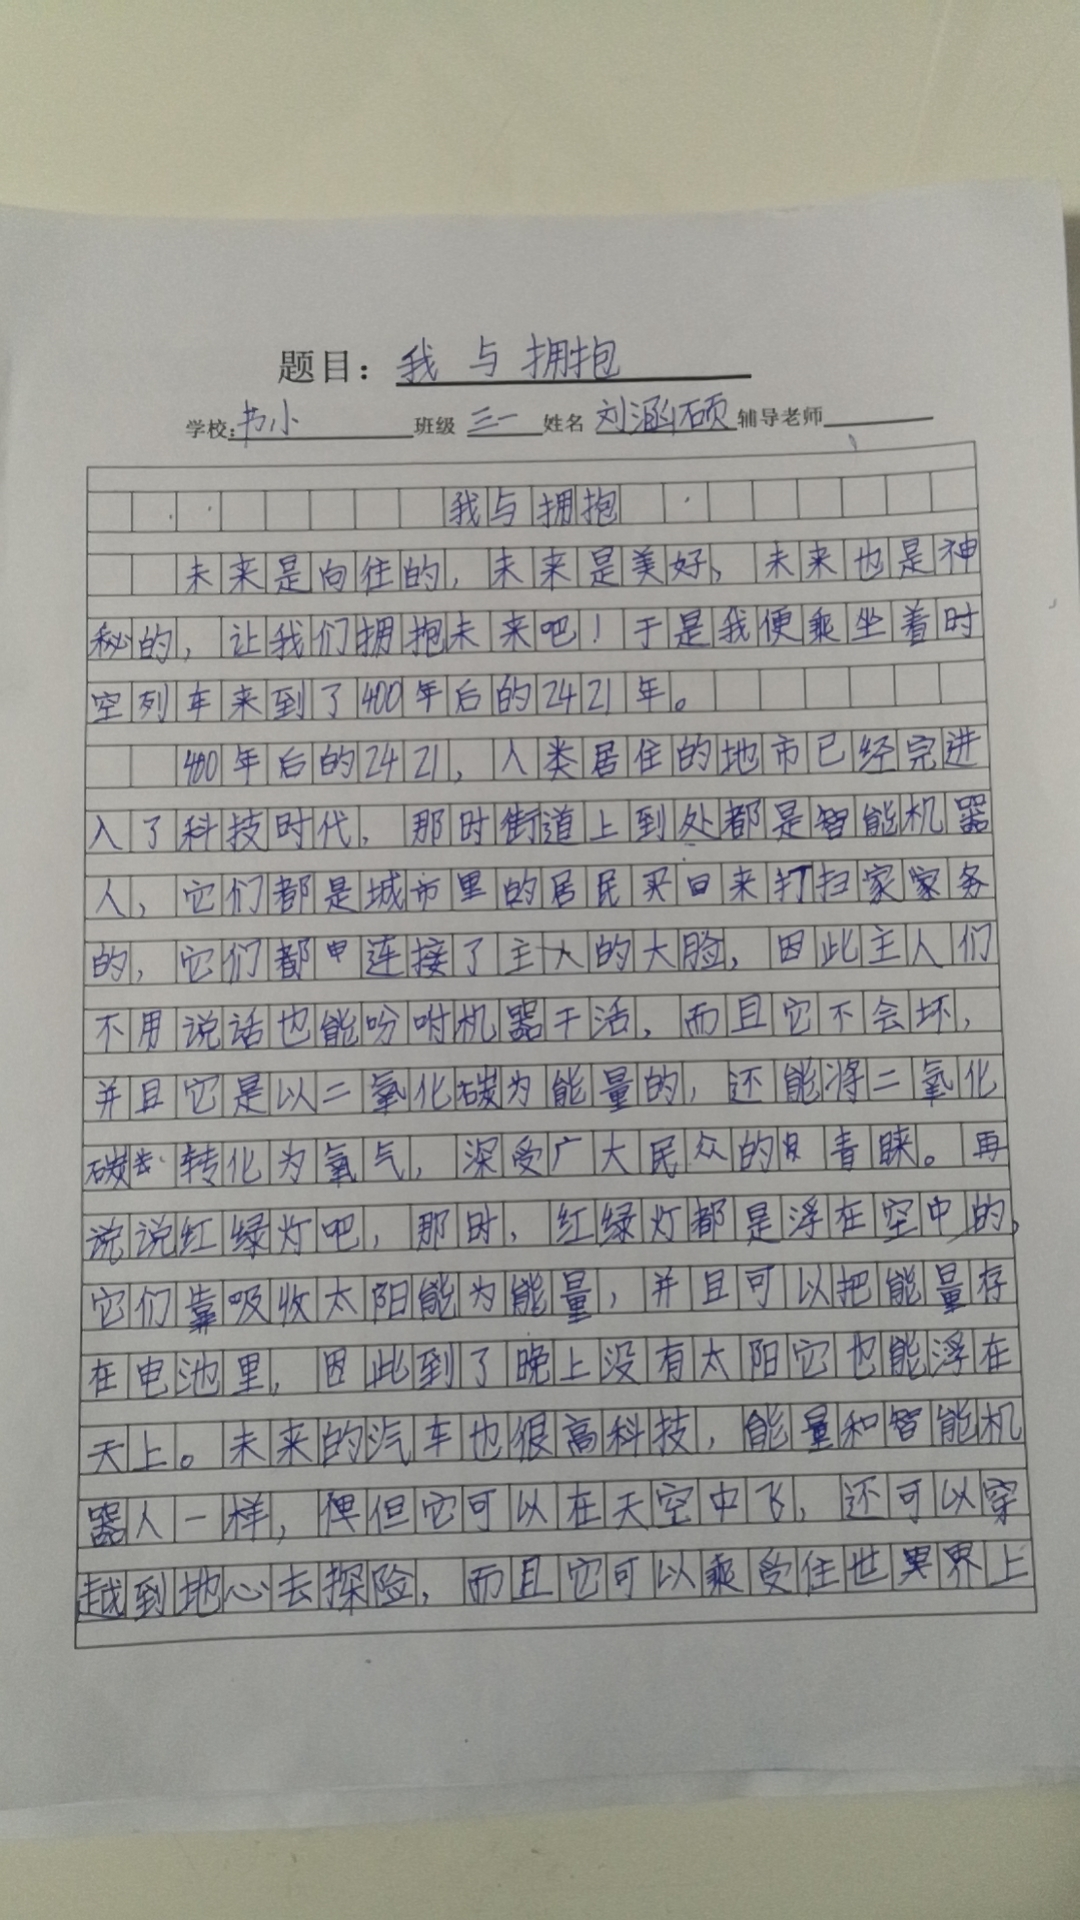 题目：我与拥抱
学校：书小 班级 三一 姓名 刘涵硕 辅导老师
我与拥抱
未来是向往的，未来是美好、未来也是神
秘的，让我们拥抱未来吧！于是我便乘坐着时
空列车来到了400年后的2421年。
400年后的2421，人类居住的地市已经完进
入了科技时代，那时街道上到处都是智能机器
人，它们都是城市里的居民买回来打扫家家务
的，它们都申连接了主人的大脸，因此主人们
不用说话也能吩咐机器干活，而且它不会坏，
并且它是以二氧化碳为能量的，还能将二氧化
碳转化为氧气，深受广大民众的青睐。再
说说红绿灯吧，那时，红绿灯都是浮在空中的，
它们靠吸收太阳能为能量，并且可以把能量存
在电池里，因此到了晚上没有太阳它也能浮在
天上。未来的汽车也很高科技，能量和智能机
器人一样，俾但它可以在天空中飞，还可以穿
越到地心去探险，而且它可以乘受住世界上